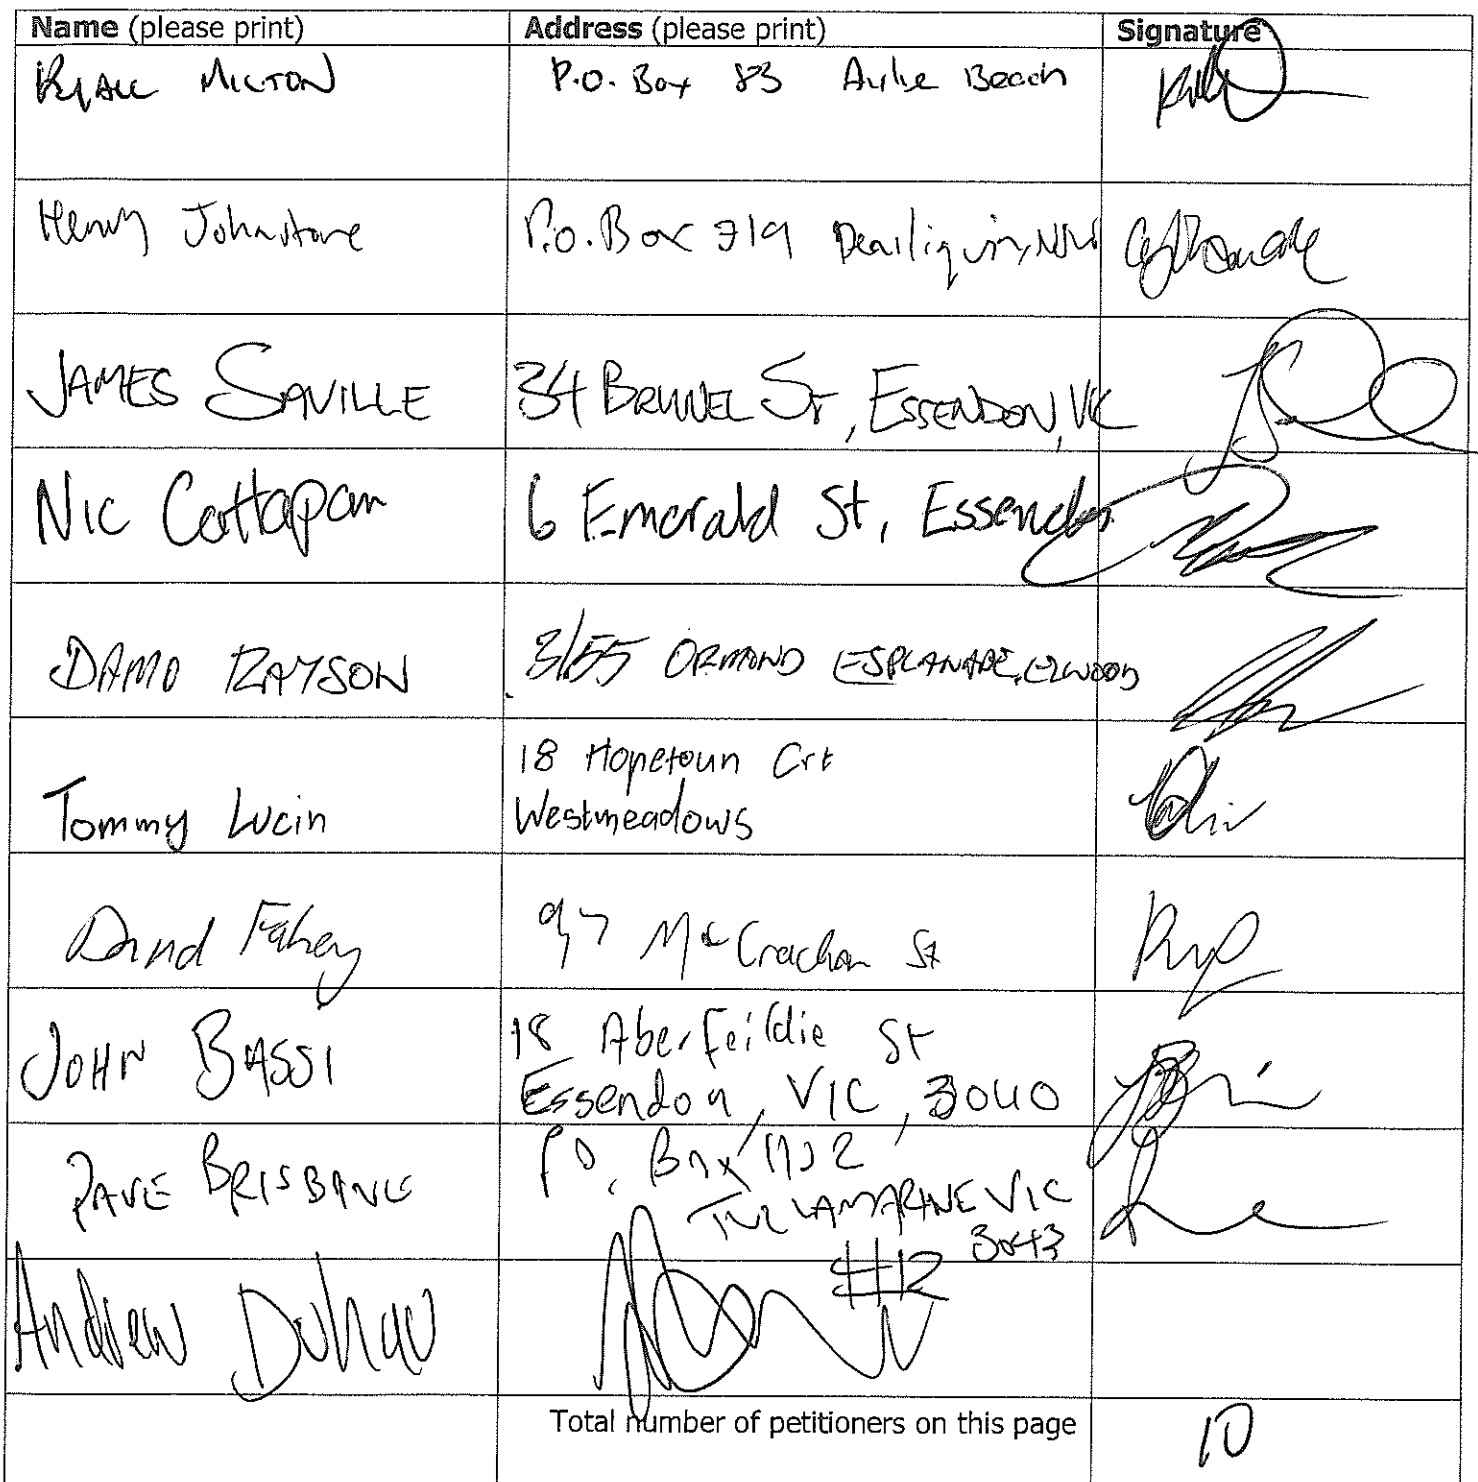 Name (please print) Address (please print) Signature
MILTON P.O. Box 83 Airlie Beach
Henry Johnstone P.O. Box 719 Deniliquin, NSW
JAMES SAVILLE 34 BRUNEL ST, ESSENDON, VIC
Nic Cattapan 6 Emerald St, Essendon
DAMO RAYSON 3/55 ORMOND ESPLANADE, ELWOOD
18 Hopetoun Crt
Tommy Lucin Westmeadows
David Fahey 97 McCrachan St
18 Aberfeildie St
JOHN BASSI Essendon, VIC, 3040
P.O. Box
DAVE BRISBANE TULLAMARINE VIC
3043
Andrew #12
Total number of petitioners on this page 10